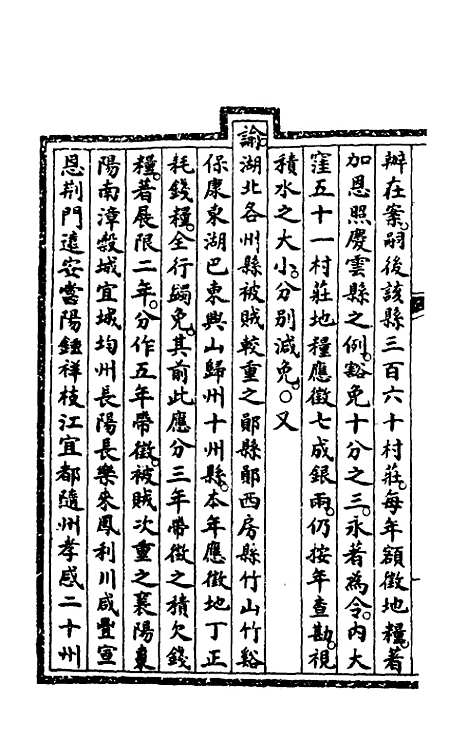 辦在案。嗣後該縣三百六十村莊。每年額徵地糧。著
加恩照慶雲縣之例。豁免十分之三。永著為令。內大
窪五十一村莊地糧應徵七成銀兩。仍按年查勘。視
積水之大小。分別減免。○又
諭湖北各州縣被賊較重之鄖縣鄖西房縣竹山竹谿
保康東湖巴東興山歸州十州縣。本年應徵地丁正
耗錢糧。全行蠲免。其前此應分三年帶徵之積欠錢
糧。著展限二年。分作五年帶徵。被賊次重之襄陽棗
陽南漳穀城宜城均州長陽長樂來鳳利川咸豐宣
恩荆門遠安當陽鍾祥枝江宜都隨州孝感二十州